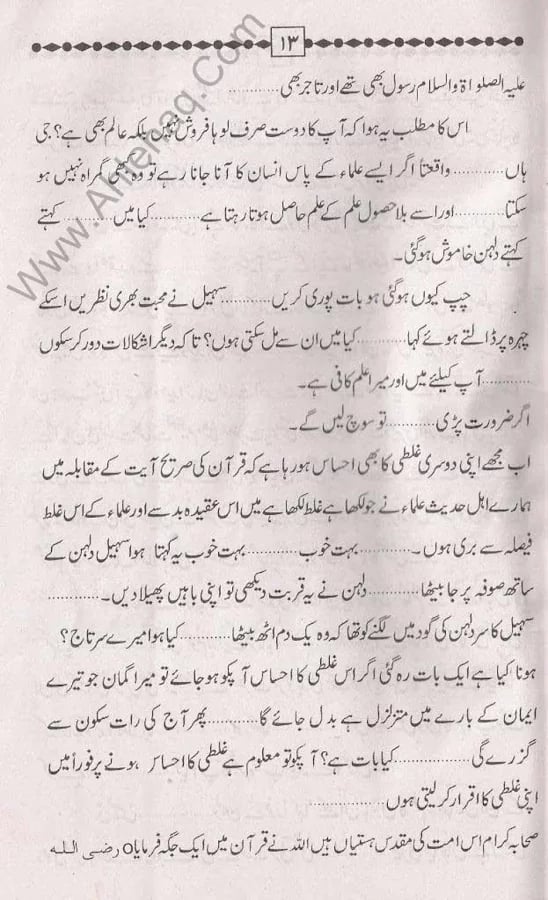 ۱۳
علیہ الصلواۃ والسلام رسول بھی تھے اور تاجر بھی ............
اس کا مطلب یہ ہوا کہ آپ کا دوست صرف لوہا فروش نہیں بلکہ عالم بھی ہے؟ جی
ہاں ............ واقعتاً اگر ایسے علماء کے پاس انسان کا آنا جانا رہے تو وہ بھی گمراہ نہیں ہو
سکتا ............ اور اسے بلا حصول علم کے علم حاصل ہوتا رہتا ہے ............ کیا میں ............ کہتے
کہتے دلہن خاموش ہوگئی۔
چپ کیوں ہوگئی ہو بات پوری کریں ............ سہیل نے محبت بھری نظریں اسکے
چہرہ پر ڈالتے ہوئے کہا ............ کیا میں ان سے مل سکتی ہوں؟ تاکہ دیگر اشکالات دور کر سکوں
............ آپ کیلئے میں اور میرا علم کافی ہے۔
اگر ضرورت پڑی ............ تو سوچ لیں گے۔
اب مجھے اپنی دوسری غلطی کا بھی احساس ہو رہا ہے کہ قرآن کی صریح آیت کے مقابلہ میں
ہمارے اہل حدیث علماء نے جو لکھا ہے غلط لکھا ہے میں اس عقیدہ بد سے اور علماء کے اس غلط
فیصلہ سے بری ہوں۔ ............ بہت خوب ............ بہت خوب یہ کہتا ہوا سہیل دلہن کے
ساتھ صوفہ پر جا بیٹھا ............ دلہن نے یہ قربت دیکھی تو اپنی باہیں پھیلا دیں۔ ............
سہیل کا سر دلہن کی گود میں لگنے کو تھا کہ وہ یک دم اٹھ بیٹھا ............ کیا ہوا میرے سرتاج؟
ہونا کیا ہے ایک بات رہ گئی اگر اس غلطی کا احساس آپکو ہو جائے تو میرا گمان جو تیرے
ایمان کے بارے میں متزلزل ہے بدل جائے گا ............ پھر آج کی رات سکون سے
گزرے گی ............ کیا بات ہے؟ آپکو تو معلوم ہے غلطی کا احساس ہونے پر فوراً میں
اپنی غلطی کا اقرار کر لیتی ہوں ............
صحابہ کرام اس امت کی مقدس ہستیاں ہیں اللہ نے قرآن میں ایک جگہ فرمایا o رضی اللہ
Www.Ahlehaq.Com